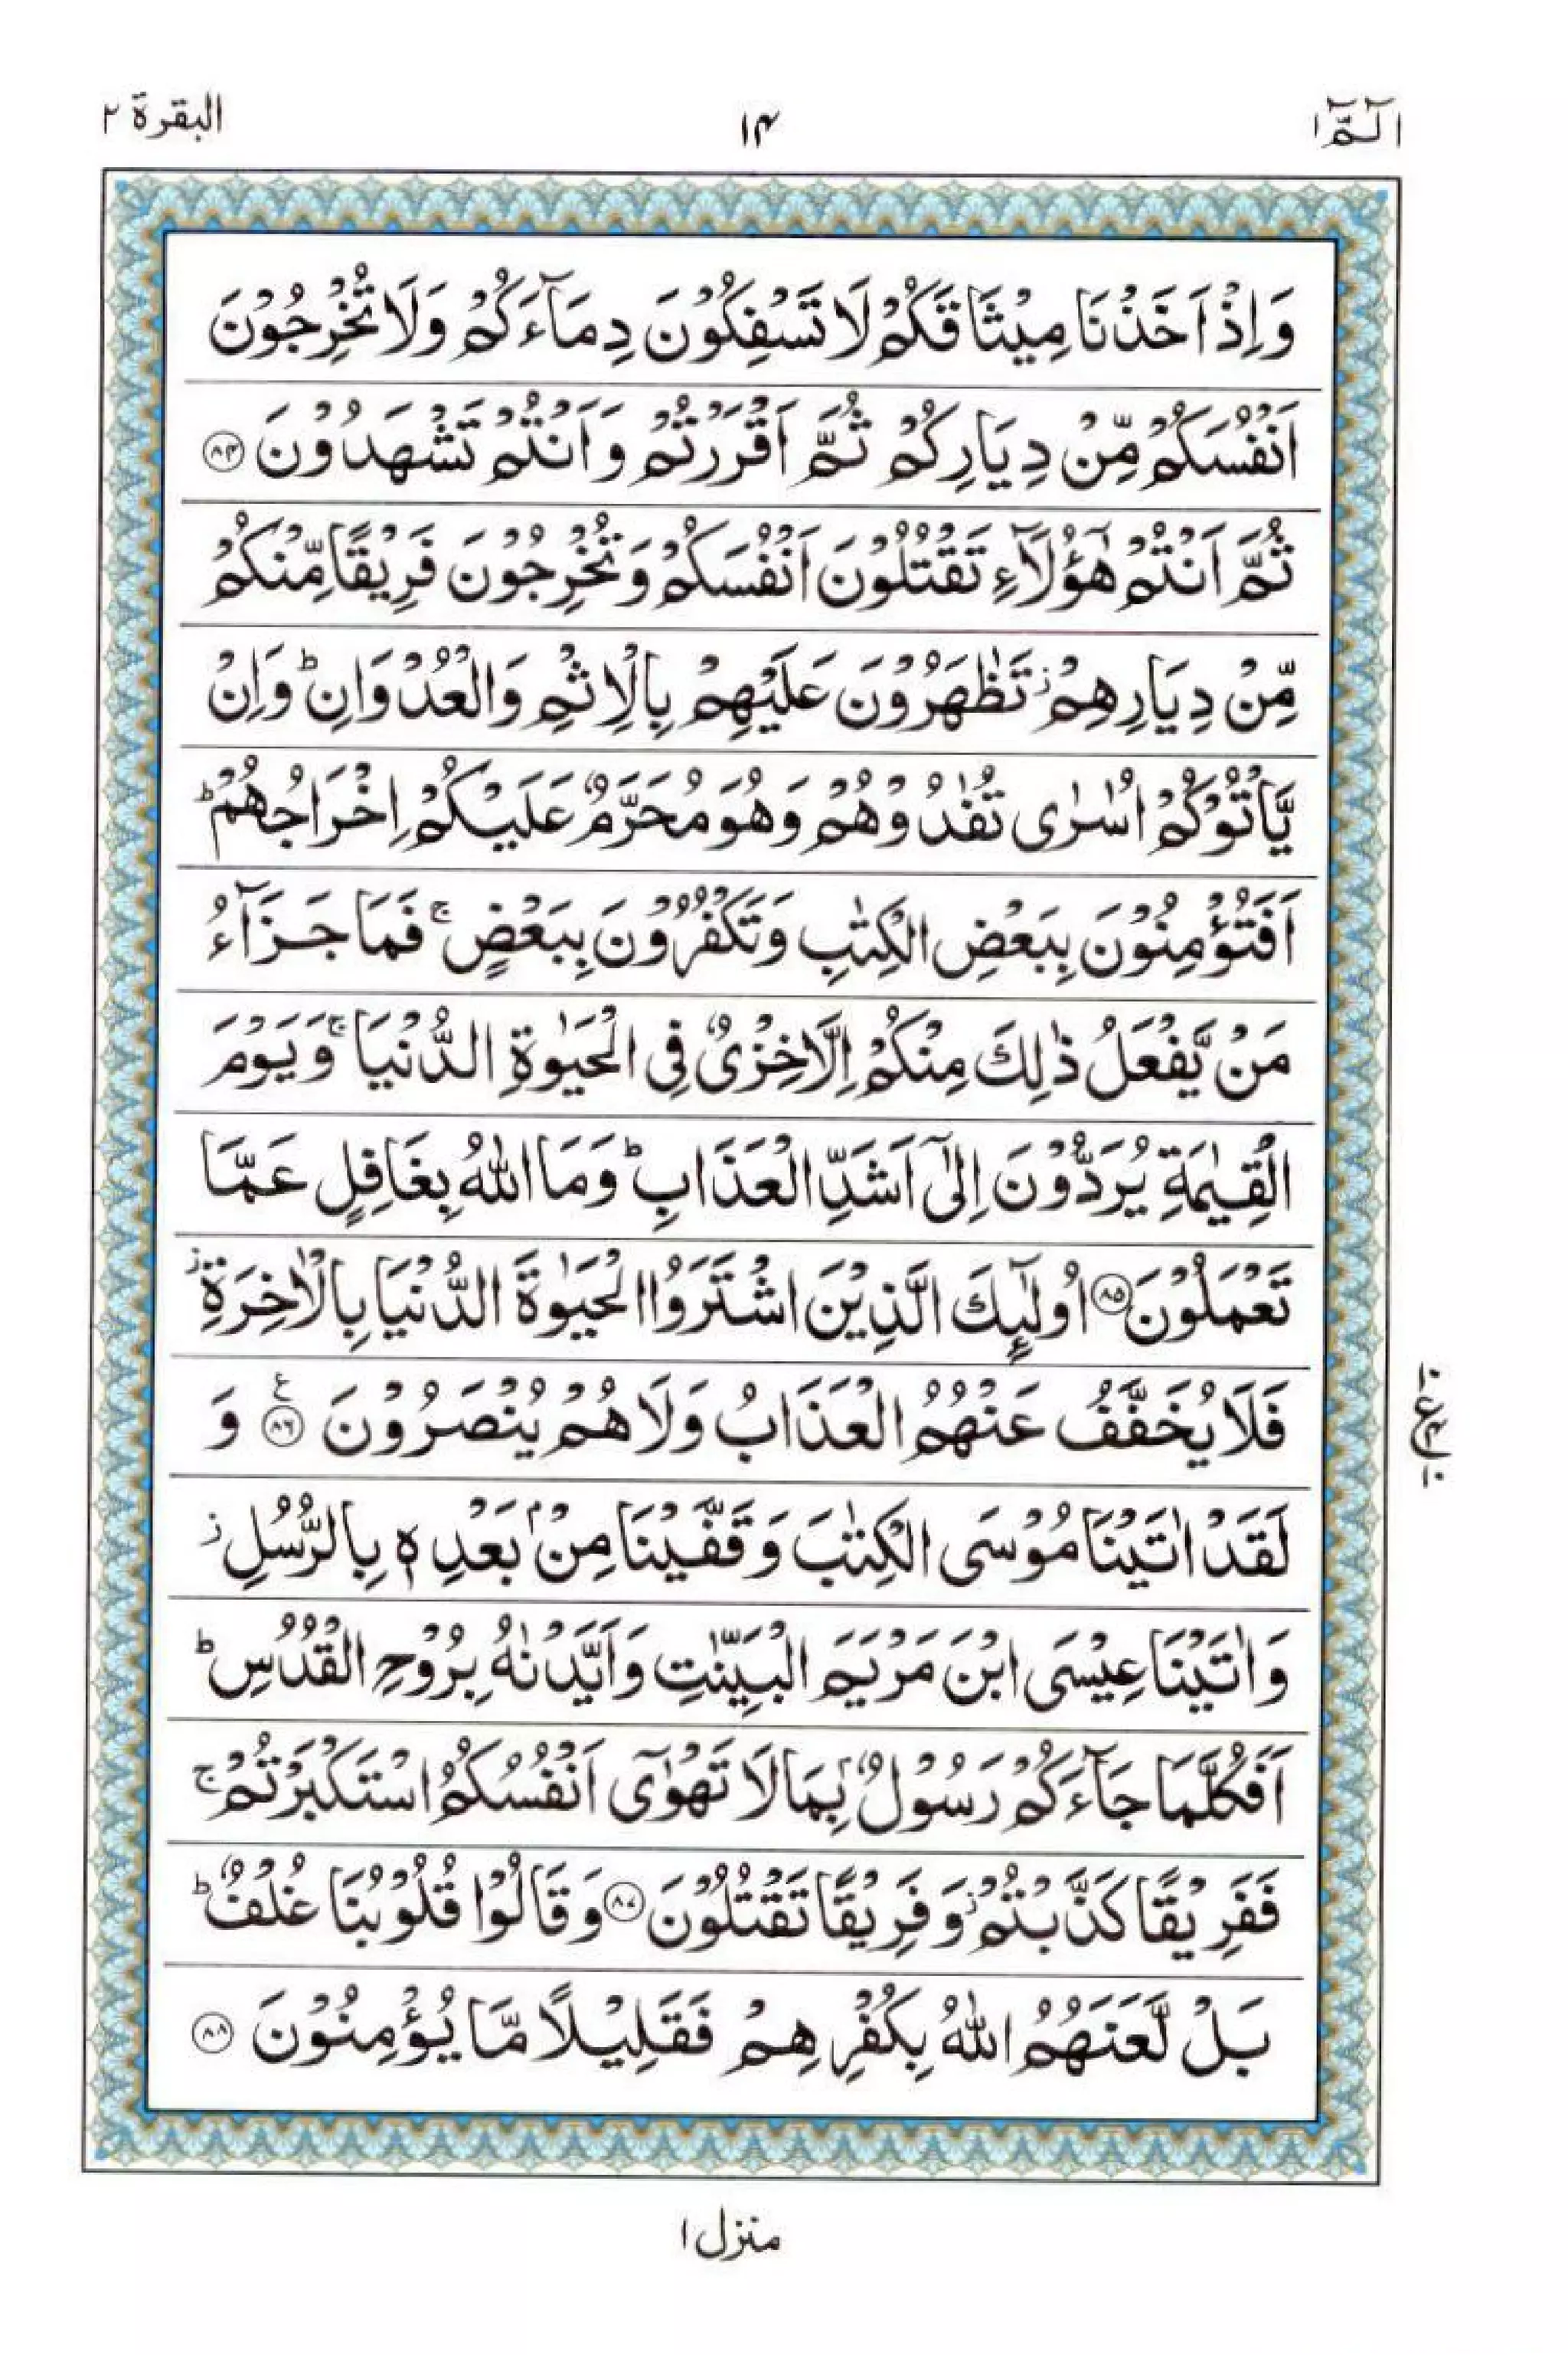 الٓمّٓ ۱
۱۴
البقرة ۲
وَاِذْ اَخَذْنَا مِيْثَاقَكُمْ لَا تَسْفِكُوْنَ دِمَآءَكُمْ وَلَا تُخْرِجُوْنَ
اَنْفُسَكُمْ مِّنْ دِيَارِكُمْ ثُمَّ اَقْرَرْتُمْ وَاَنْتُمْ تَشْهَدُوْنَ ۝۸۴
ثُمَّ اَنْتُمْ هٰٓؤُلَآءِ تَقْتُلُوْنَ اَنْفُسَكُمْ وَتُخْرِجُوْنَ فَرِيْقًا مِّنْكُمْ
مِّنْ دِيَارِهِمْ ز تَظٰهَرُوْنَ عَلَيْهِمْ بِالْاِثْمِ وَالْعُدْوَانِ ؕ وَاِنْ
يَّاْتُوْكُمْ اُسٰرٰى تُفٰدُوْهُمْ وَهُوَ مُحَرَّمٌ عَلَيْكُمْ اِخْرَاجُهُمْ ؕ
اَفَتُؤْمِنُوْنَ بِبَعْضِ الْكِتٰبِ وَتَكْفُرُوْنَ بِبَعْضٍ ۚ فَمَا جَزَآءُ
مَنْ يَّفْعَلُ ذٰلِكَ مِنْكُمْ اِلَّا خِزْىٌ فِى الْحَيٰوةِ الدُّنْيَا ۚ وَيَوْمَ
الْقِيٰمَةِ يُرَدُّوْنَ اِلٰٓى اَشَدِّ الْعَذَابِ ؕ وَمَا اللّٰهُ بِغَافِلٍ عَمَّا
تَعْمَلُوْنَ ۝۸۵ اُولٰٓئِكَ الَّذِيْنَ اشْتَرَوُا الْحَيٰوةَ الدُّنْيَا بِالْاٰخِرَةِ ز
فَلَا يُخَفَّفُ عَنْهُمُ الْعَذَابُ وَلَا هُمْ يُنْصَرُوْنَ ۝۸۶ ع وَ
لَقَدْ اٰتَيْنَا مُوْسَى الْكِتٰبَ وَقَفَّيْنَا مِنْۢ بَعْدِهٖ بِالرُّسُلِ ز
وَاٰتَيْنَا عِيْسَى ابْنَ مَرْيَمَ الْبَيِّنٰتِ وَاَيَّدْنٰهُ بِرُوْحِ الْقُدُسِ ؕ
اَفَكُلَّمَا جَآءَكُمْ رَسُوْلٌۢ بِمَا لَا تَهْوٰٓى اَنْفُسُكُمُ اسْتَكْبَرْتُمْ ۚ
فَفَرِيْقًا كَذَّبْتُمْ ز وَفَرِيْقًا تَقْتُلُوْنَ ۝۸۷ وَقَالُوْا قُلُوْبُنَا غُلْفٌ ؕ
بَلْ لَّعَنَهُمُ اللّٰهُ بِكُفْرِهِمْ فَقَلِيْلًا مَّا يُؤْمِنُوْنَ ۝۸۸
منزل ۱